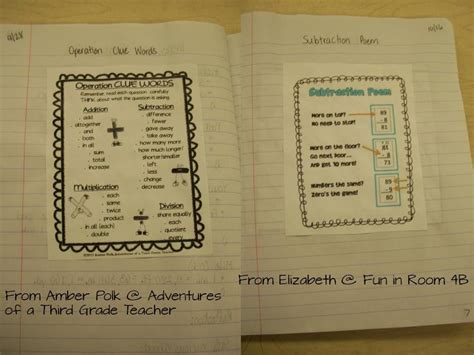 10/28
Operation Clue Words
Operation CLUE WORDS
Remember read each question carefully.
THINK about what the question is asking
Addition
• add
• altogether
• and
• both
• in all
• sum
• total
• increase
Subtraction
• difference
• fewer
• gave away
• take away
• how many more
• how much longer/
shorter/smaller
• left
• less
• change
• decrease
Multiplication
• each
• same
• twice
• product
• in all (each)
• double
Division
• share equally
• each
• quotient
• every
From Amber Polk @ Adventures
of a Third Grade Teacher
10/26
Subtraction Poem
Subtraction Poem
More on top?
No need to stop!
89
- 8
81
More on the floor?
Go next door...
And get 10 more!
81
- 8
73
Numbers the same?
Zero's the game!
89
- 9
80
From Elizabeth @ Fun in Room 4B
7